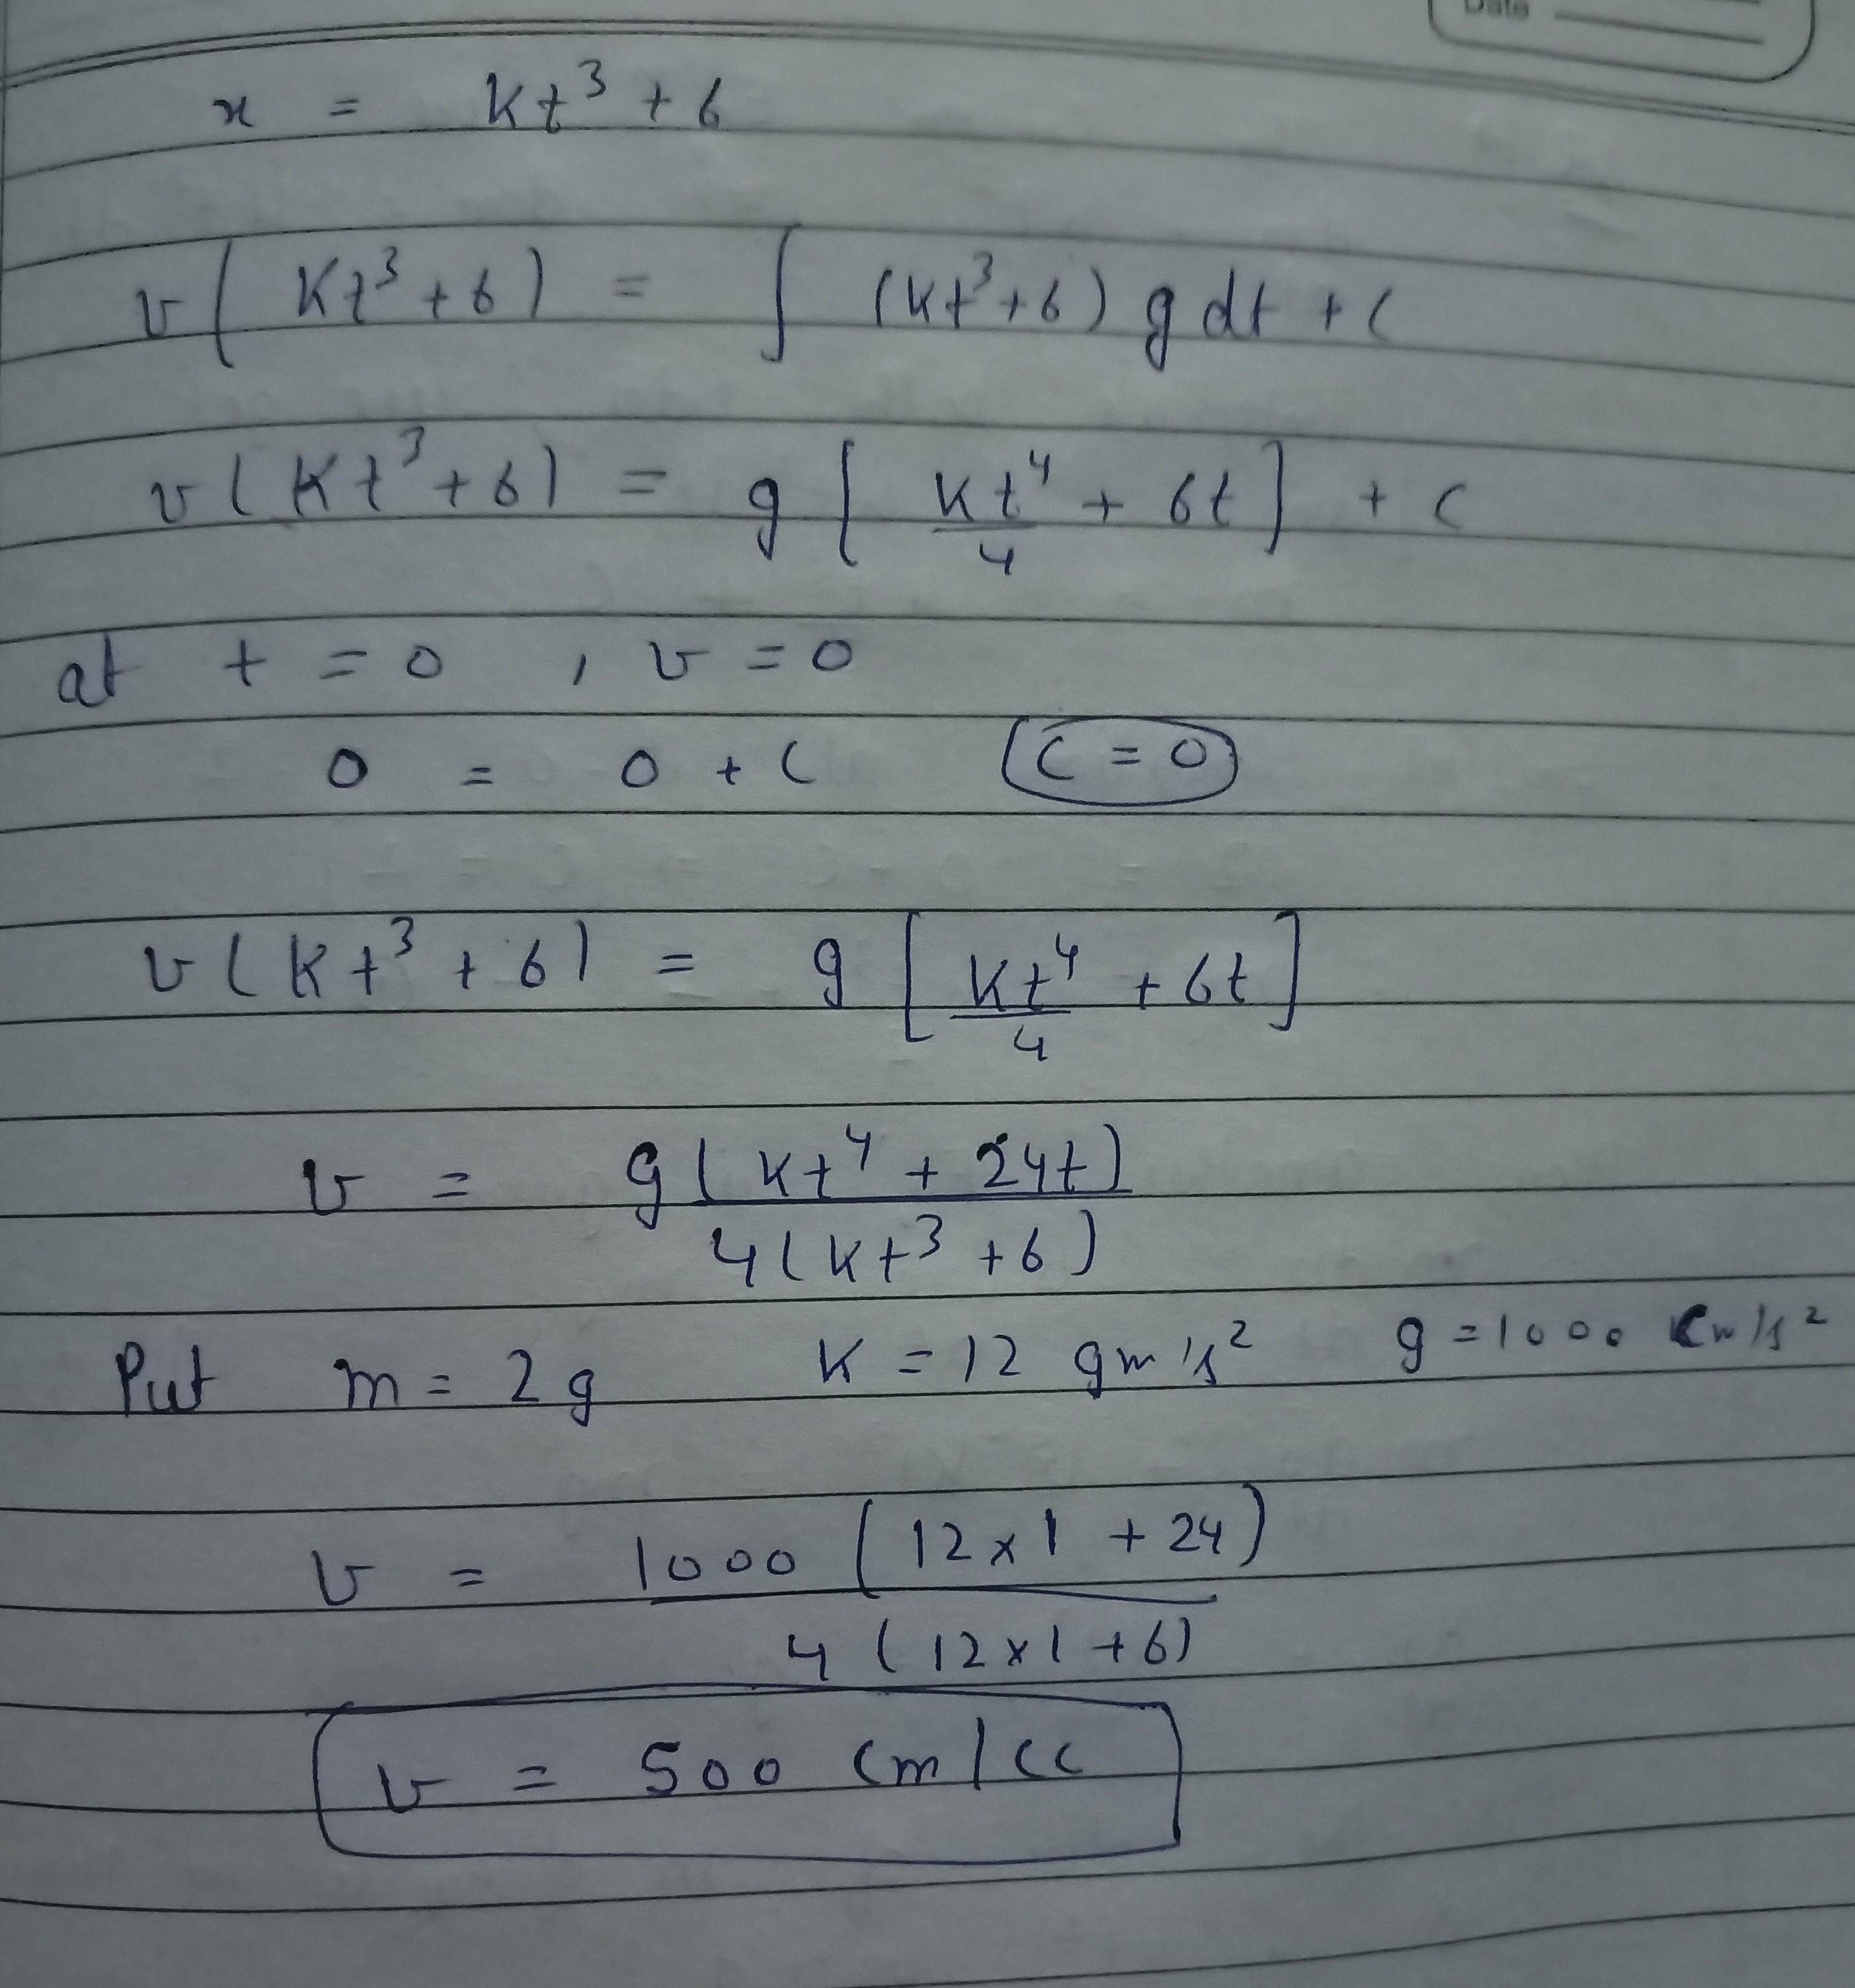 Date
x = kt³ + 6
v( Kt³ + 6 ) = ∫ (kt³ + 6) g dt + C
v( Kt³ + 6 ) = g [ Kt⁴/4 + 6t ] + C
at t = 0 , v = 0
0 = 0 + C (C = 0)
v( Kt³ + 6 ) = g [ Kt⁴/4 + 6t ]
v = g( Kt⁴ + 24t ) / 4( kt³ + 6 )
Put m = 2g K = 12 gm/s² g = 1000 cm/s²
v = 1000 ( 12 x 1 + 24 ) / 4 ( 12 x 1 + 6 )
v = 500 cm/cc